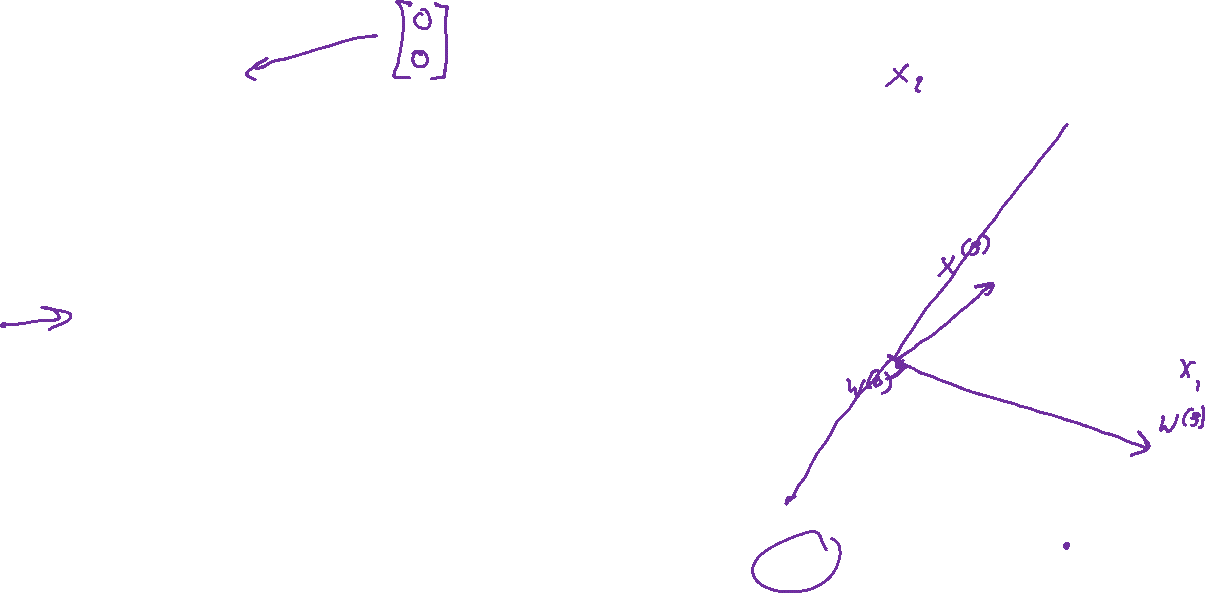 [0
0]
x₂
x(0)
w(0)
x₁
w(3)